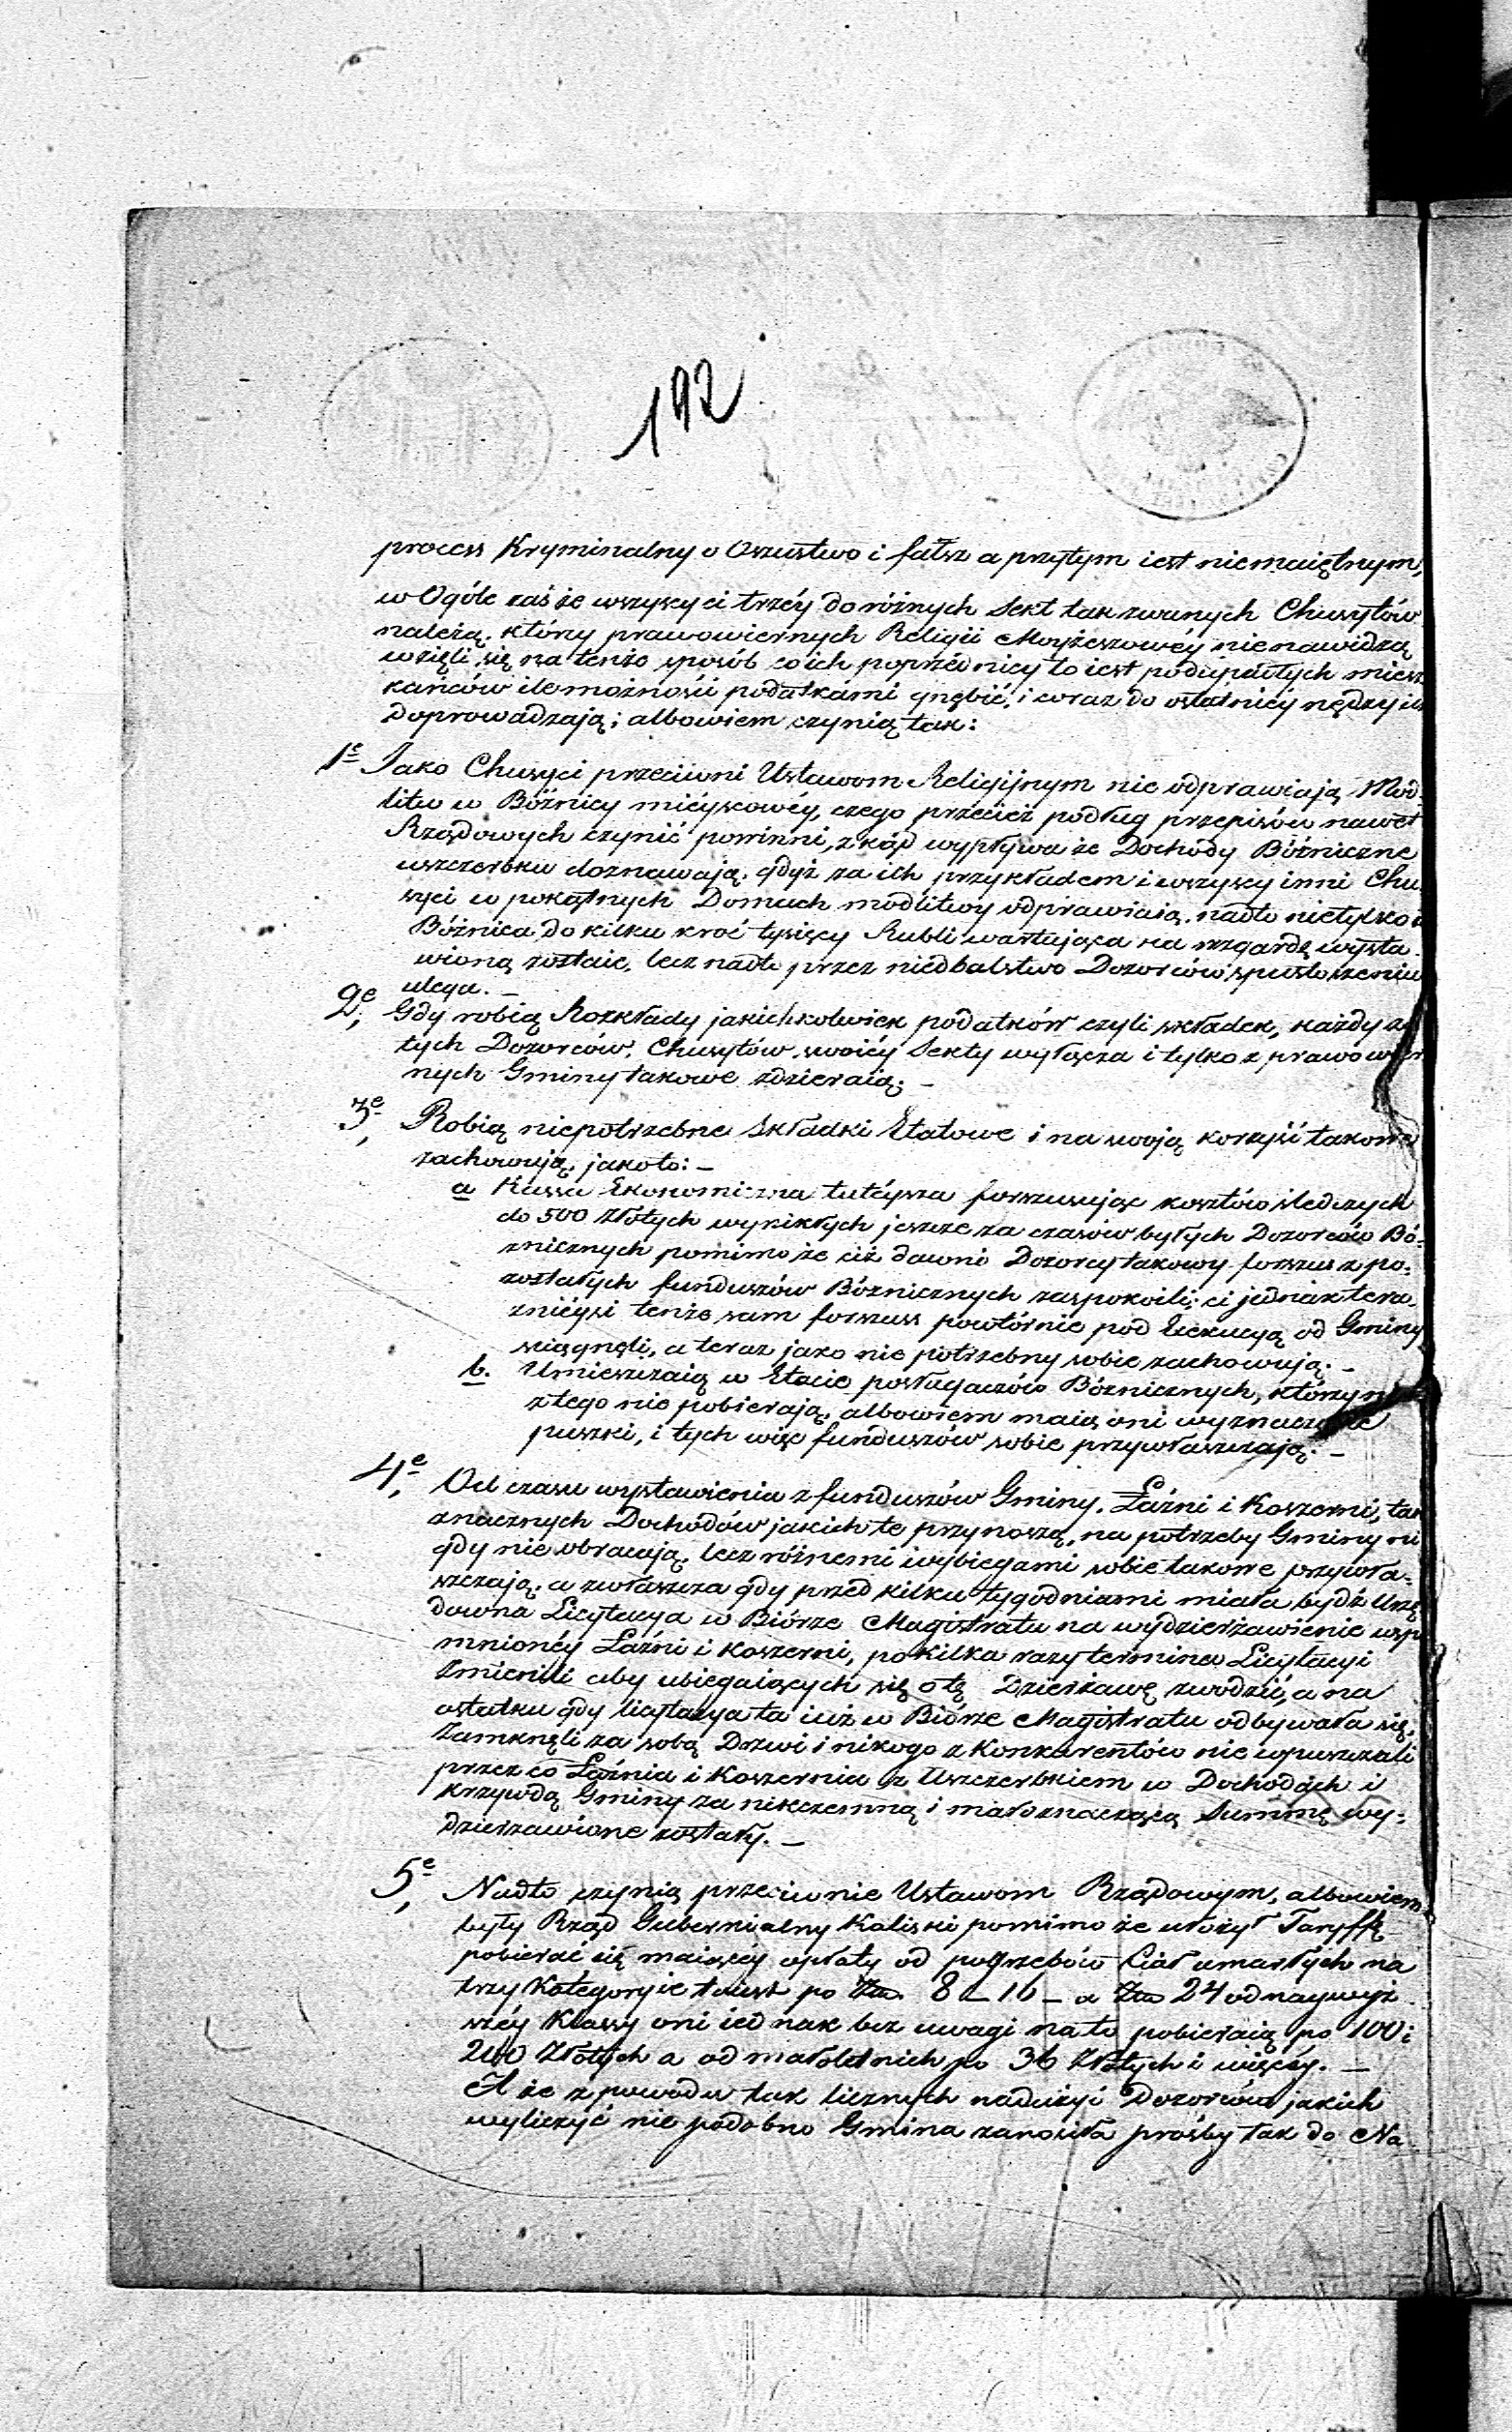 192
process Kryminalny o Oszustwo i fałsz a przytym iest niemaiętnym,
w Ogóle zaś że wszyscy ci trzéy do różnych Sekt tak zwanych Chusytów
należą, którzy prawowiernych Religii Moyżeszowéy nienawidzą
wzięli się na tenże sposób co ich poprzednicy to iest podupadłych miesz
kańców ile możności podatkami gnębić, i coraz do ostatniéy nędzy ich
doprowadzają; albowiem czynią tak:
1e Jako Chusyci przeciwni Ustawom Religijnym nie odprawiają Mod-
litw w Bóźnicy miéyscowéy, czego przecież podług przepisów nawet
Rządowych czynić powinni, zkąd wypływa że Dochody Bóźniczne
uszczerbku doznawają, gdyż za ich przykładem i wszyscy inni Chu
syci w pokątnych Domach modlitwy odprawiaią, nadto nietylko
Bóźnica do kilku kroć tysięcy Rubli wartująca na wzgardę wysta
wioną zostaie, lecz nadto przez niedbalstwo Dozorców spustoszeniu
ulega. –
2e, Gdy robią Rozkłady jakichkolwiek podatków czyli składek, każdy z
tych Dozorców, Chusytów swoiéy Sekty wyłącza i tylko z prawowier
nych Gminy takowe zdzieraią; –
3e, Robią niepotrzebne Składki Etatowe i na swoją korzyść takowe
zachowują, jakoto: –
a Kassa Ekonomiczna tutéysza forszusując kosztów śledczych
do 500 Złotych wynikłych jeszcze za czasów byłych Dozorców Bó-
źnicznych pomimo że ciż dawni Dozorcy takowy forszus z po-
zostałych funduszów Bóźnicznych zaspokoili; ci jednak tera-
znićysi tenże sam forszuss powtórnie pod Exekucyą od Gminy
ściągnęli, a teraz jako nie potrzebny sobie zachowują. –
b. Umieszczaią w Etacie posługaczów Bóźnicznych, którzy
z tego nie pobierają, albowiem maią oni wyznaczone
puszki, i tych więc funduszów sobie przywłaszczają. –
4e, Od czasu wystawienia z funduszów Gminy, Łaźni i Koszerni, tak
znacznych Dochodów jakich te przynoszą, na potrzeby Gminy ni
gdy nie obracają, lecz różnemi wybiegami sobie takowe przywła-
szczają, a zwłaszcza gdy przed kilku tygodniami miała bydź Urzę
downa Licytacya w Biórze Magistratu na wydzierżawienie wspo
mnionéy Łaźni i Koszerni, po kilka razy termina Licytacyi
zmienili aby ubiegaiących się o tę Dzierżawę zwodzić, a na
ostatku gdy licytacya ta iuż w Biórze Magistratu odbywała się,
Zamknęli za sobą Drzwi i nikogo z Konkurentów nie wpuszczali
przez co Łaźnia i Koszernia z Uszczerbkiem w Dochodach i
krzywdą Gminy za nikczemną i małoznaczącą Summę wy-
dzierżawione zostały. –
5e, Nadto czynią przeciwnie Ustawom Rządowym, albowiem
były Rząd Gubernialny Kaliski pomimo że ułożył Taryffę
pobierać się maiącéy opłaty od pogrzebów Ciał umarłych na
trzy Kategoryie to iest po Złn. 8 – 16 – a Złn 24 od naywyż
széy Klassy oni iednak bez uwagi na to pobieraią po 100 i
200 Złotych a od małoletnich po 36 Złotych i więcéy. –
A że z powodu tak licznych nadużyć Dozorców jakich
wyliczyć nie podobno Gmina zanosiła prośby tak do Na